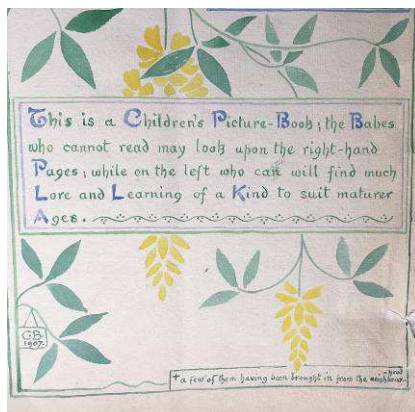 This is a Children's Picture-Book; the Babes
who cannot read may look upon the right-hand
Pages; while on the left who can will find much
Lore and Learning of a Kind to suit maturer
Ages.
C.B.
1907.
-hood
+ a few of them having been brought in from the neighbour-